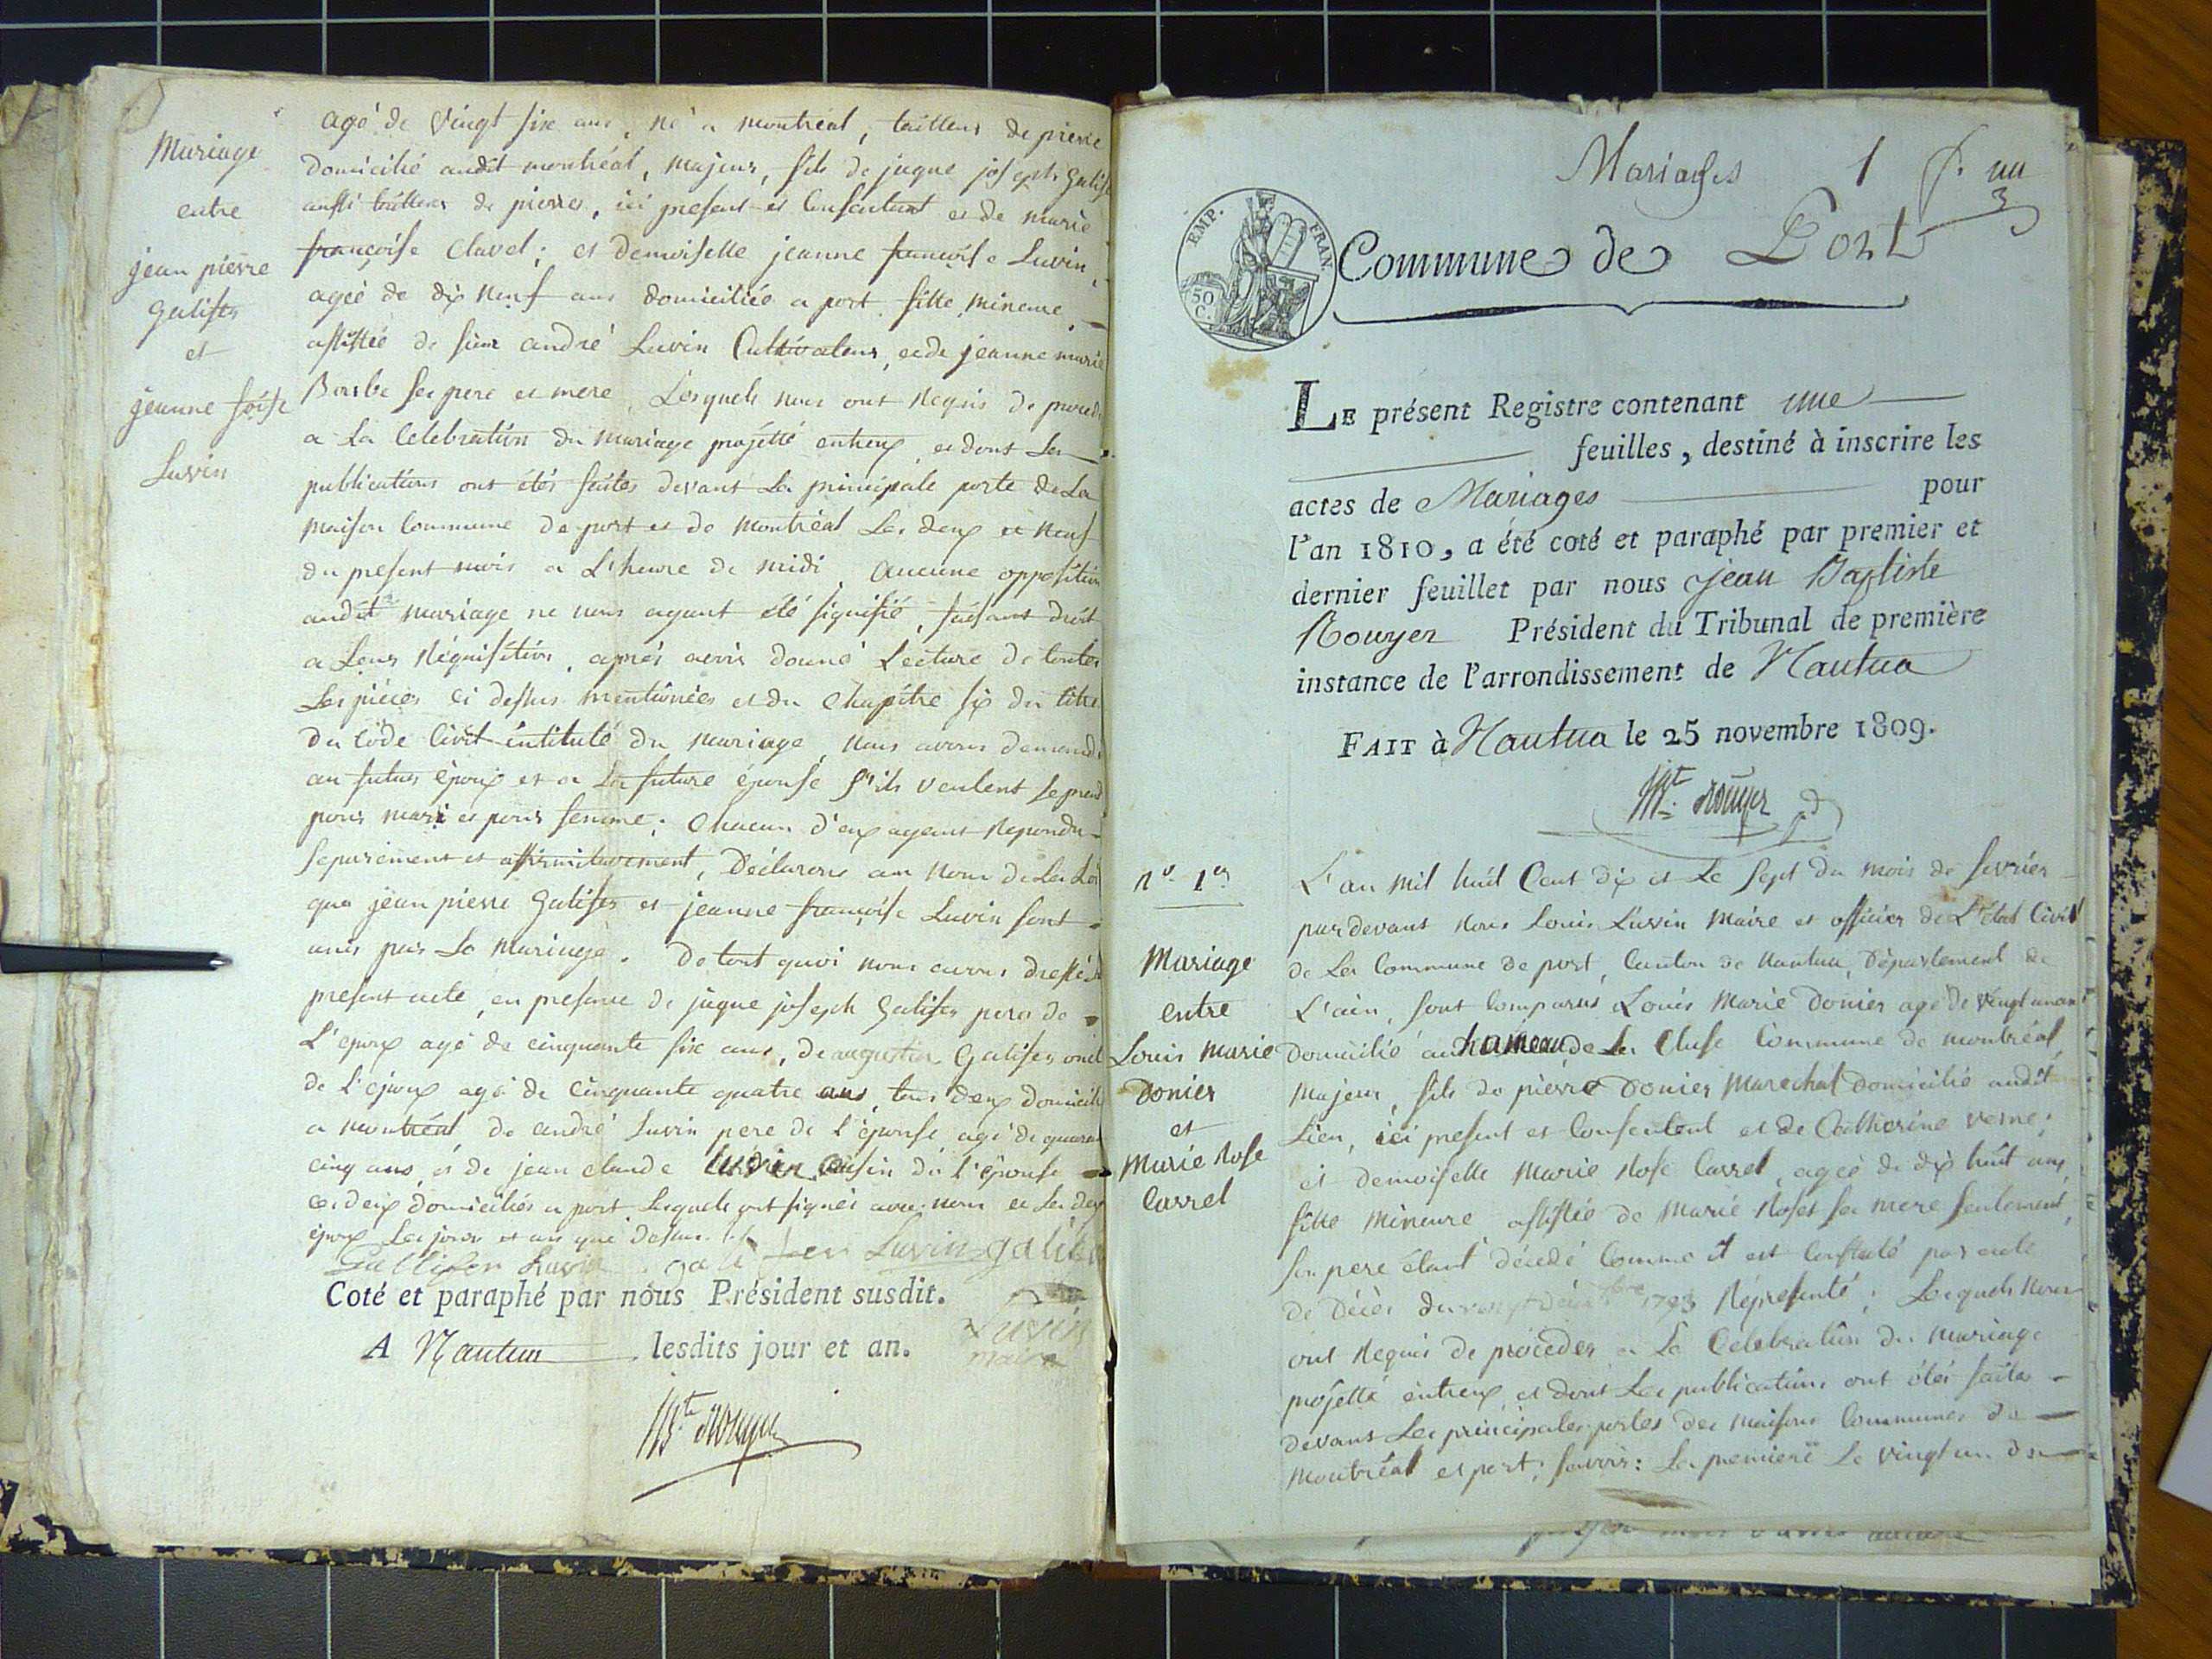 Mariage
entre
jean pierre
Galifer
et
jeanne fõise
Luvin
agé de vingt six ans, né a montréal, tailleur de pierre
domicilié audit montréal, majeur, fils de jaque joseph Galifer
aussi tailleur de pierres, ici présent et Consentant et de marie
françoise Clavel; et demoiselle jeanne françoise Luvin,
agée de dix neuf ans domiciliée a port fille mineure,
assistée de sieur andré Luvin Cultivateur, et de jeanne marie
ses pere et mere, Lesquels nous ont requis de proceder
a La Célébration du mariage projetté entreux, et dont Les
publications ont étés faites devant La principale porte de La
maison Commune de port et de montréal Les deux et neuf
du présent mois a L'heure de midi, aucune opposition
audit mariage ne nous ayant été signifié, faisant droit
a Leur réquisition, après avoir donné Lecture de toutes
Les pièces ci dessus mentionnées et du Chapitre six du titre
du Code Civil intitulé du mariage, nous avons demandé
au futur époux et a La future épouse s'ils veulent se prendre
pour mari et pour femme; Chacun d'eux ayant repondu
séparément et affirmativement, Déclarons au nom de La Loi
que jean pierre Galifer et jeanne françoise Luvin sont
unis par Le mariage. De tout quoi nous avons dressé
présent acte, en présence de jaque joseph Galifer pere de
L'époux agé de cinquante six ans, de augustin Galifer oncle
de l'époux agé de cinquante quatre ans, tous deux domiciliés
a montréal, de andré Luvin pere de l'épouse agé de quarante
cinq ans, et de jean claude Luvin Cousin de l'épouse
Ces deux domiciliés a port Lesquels ont signés avec nous et Les deux
époux Les jour et an que dessus.
Gallifer Luvin galifer Luvin galifer
Luvin
maire
Coté et paraphé par nous Président susdit.
A Nantua lesdits jour et an.
Bte Rouyer
Mariages 1 f. un
3
EMP. FRAN.
50
C.
Commune de Port
LE présent Registre contenant une
feuilles, destiné à inscrire les
actes de Mariages pour
l'an 1810, a été coté et paraphé par premier et
dernier feuillet par nous Jean Baptiste
Rouyer Président du Tribunal de première
instance de l'arrondissement de Nantua
FAIT à Nantua le 25 novembre 1809.
Bte Rouyer
n° 1er
Mariage
entre
Louis Marie
Donier
et
Marie Rose
Carrel
L'an mil huit Cent dix et Le sept du mois de fevrier
pardevant nous Louis Luvin Maire et officier de L'état Civil
de La Commune de port, Canton de Nantua, Département de
L'ain, sont Comparus Louis Marie Donier agé de vingt un ans
domicilié au hameau de La Cluse Commune de montréal,
Majeur, fils de pierre Donier Marechal domicilié audit
Lieu, ici présent et Consentant et de Catherine verne;
et demoiselle Marie Rose Carrel, agée de dix huit ans,
fille Mineure assistée de Marie Roset sa mere seulement,
son pere étant décedé Comme il est Constaté par acte
de Décès du 1793 Réprésenté; Lesquels nous
ont requis de procéder a La Célébration du mariage
projetté entreux, et dont Les publications ont étés faites
devant Les principales portes des maisons Communes de
Montréal et port; savoir: La premiere Le vingt un du